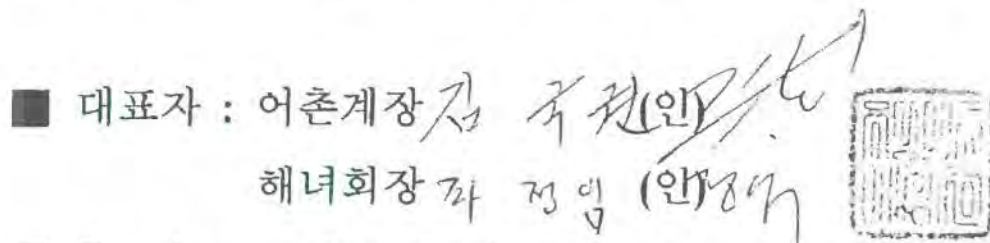 ■ 대표자 : 어촌계장 김 국진 (인)
해녀회장 좌 정임 (인)